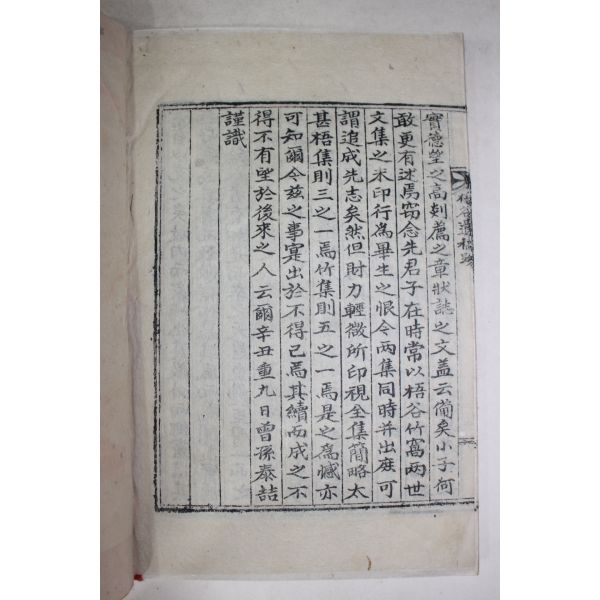 實德望之高剡薦之章狀誌之文盖云備矣小子何
敢更有述焉窃念先君子在時常以梧谷竹窩兩世
文集之未印行為畢生之恨今兩集同時并出庶可
謂追成先志矣然但財力輕微所印視全集簡略太
甚梧集則三之一焉竹集則五之一焉是之為憾亦
可知爾今玆之事寔出於不得已焉其續而成之不
得不有望於後來之人云爾辛丑重九日曾孫泰喆
謹識
梧谷遺稿跋